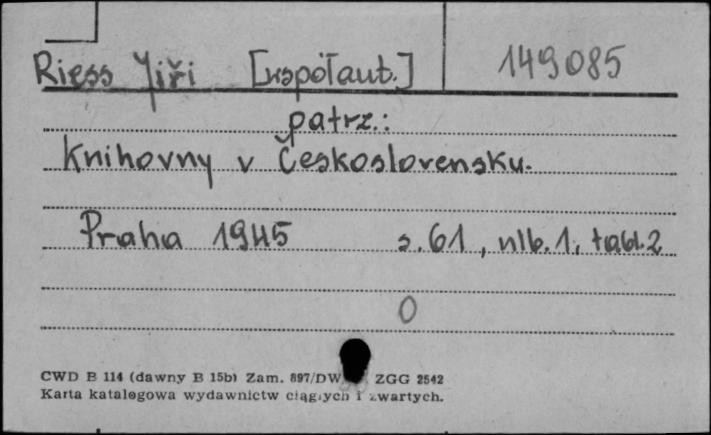 Riess Jiři [współaut.] 149085
patrz.:
Knihovny v Československu.
Praha 1945 s. 61, nlb. 1, tabl. 2
0
CWD B 114 (dawny B 15b) Zam. 897/DW ZGG 2542
Karta katalogowa wydawnictw ciągłych i zwartych.